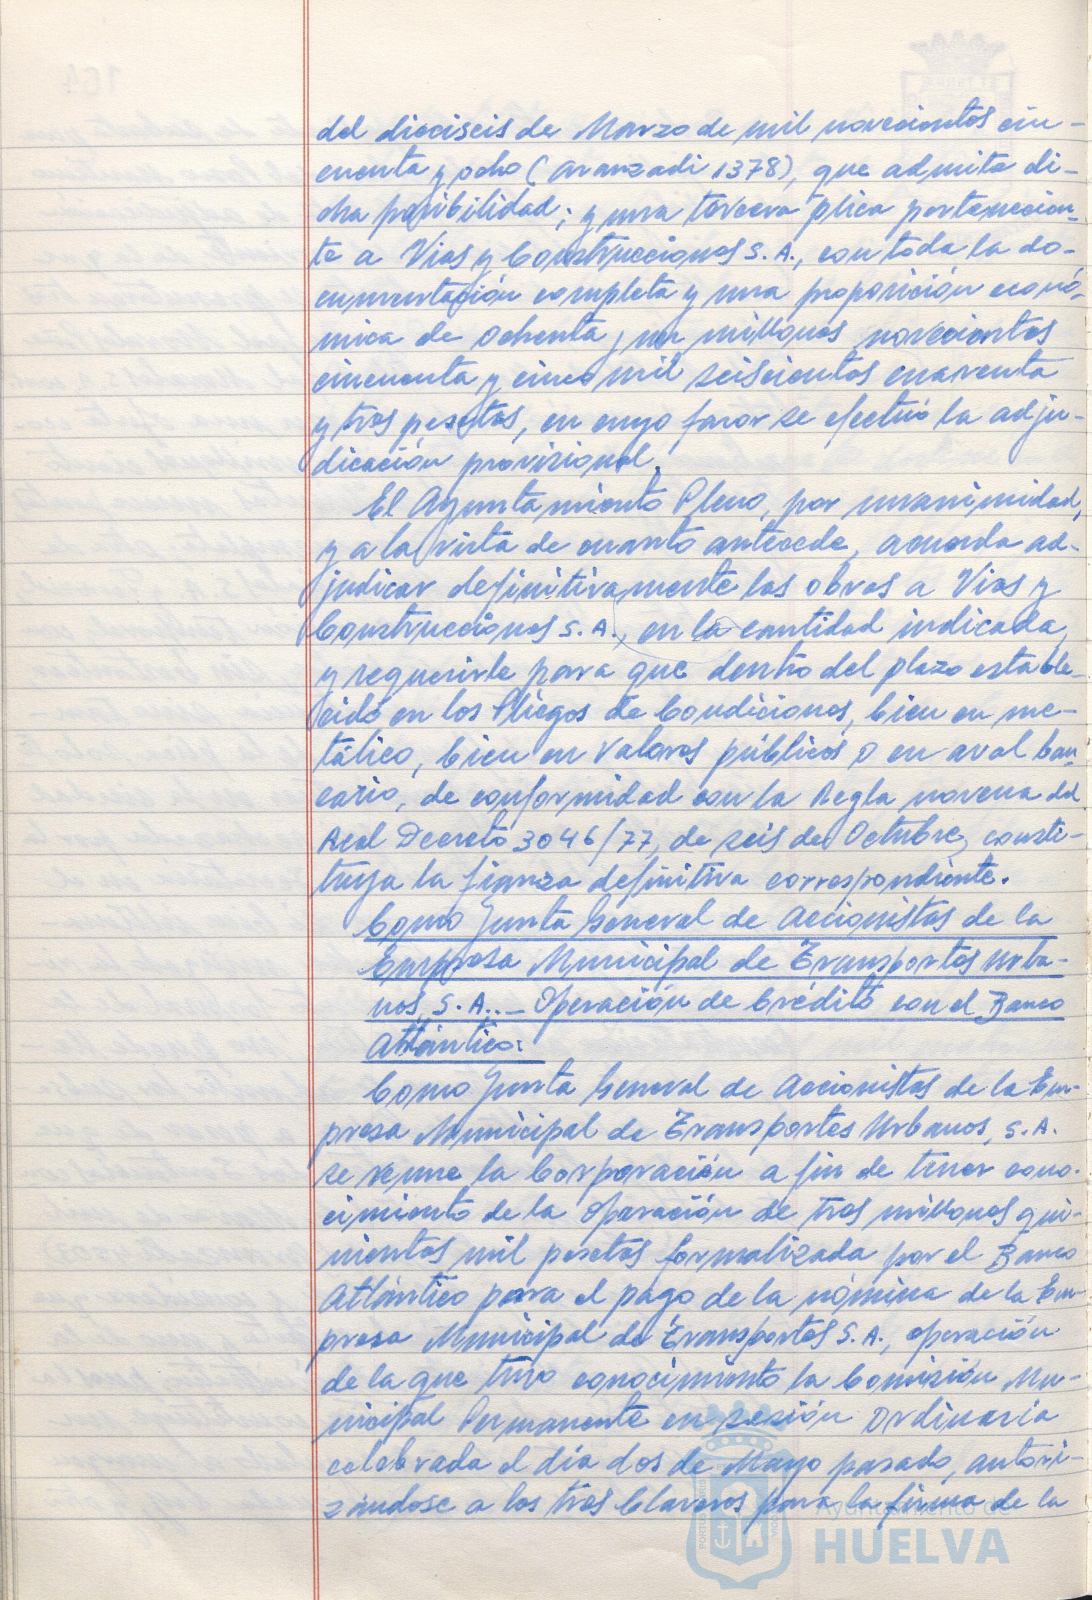 del dieciseis de Marzo de mil novecientos cin-
cuenta y ocho (Aranzadi 1378), que admite di-
cha posibilidad; y una tercera plica pertenecien-
te a Vias y Construcciones S.A., con toda la do-
cumentación completa y una proposición econó-
mica de ochenta y un millones novecientos
cincuenta y cinco mil seiscientos cuarenta
y tres pesetas, en cuyo favor se efectuó la adju-
dicación provisional.
El Ayuntamiento Pleno, por unanimidad,
y a la vista de cuanto antecede, acuerda ad-
judicar definitivamente las obras a Vias y
Construcciones S.A., en la cantidad indicada,
y requerirle para que dentro del plazo estable-
cido en los Pliegos de Condiciones, bien en me-
tálico, bien en Valores públicos o en aval ban-
cario, de conformidad con la Regla novena del
Real Decreto 3046/77, de seis de Octubre, consti-
tuya la fianza definitiva correspondiente.
Como Junta General de Accionistas de la
Empresa Municipal de Transportes Urba-
nos, S.A.. - Operación de Crédito con el Banco
Atlántico:
Como Junta General de Accionistas de la Em-
presa Municipal de Transportes Urbanos, S.A.
se reune la Corporación a fin de tener cono-
cimiento de la Operación de tres millones qui-
nientas mil pesetas formalizada por el Banco
Atlántico para el pago de la nómina de la Em-
presa Municipal de Transportes S.A., operación
de la que tuvo conocimiento la Comisión Mu-
nicipal Permanente en sesión Ordinaria
celebrada el día dos de Mayo pasado, autori-
zándose a los tres Claveros para la firma de la
Ayuntamiento de
HUELVA